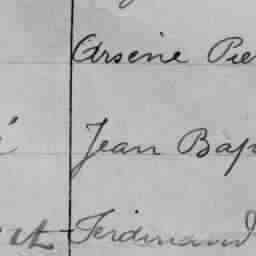 Arsène Pie
Jean Bap
Ferdinand